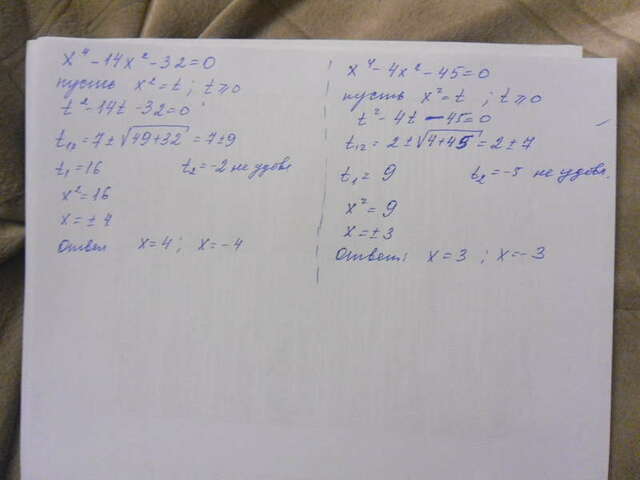 x⁴-14x²-32=0
пусть x²=t; t≥0
t²-14t-32=0
t₁₂=7±√49+32=7±9
t₁=16 t₂=-2 не удовл
x²=16
x=±4
Ответ x=4; x=-4
x⁴-4x²-45=0
пусть x²=t; t≥0
t²-4t-45=0
t₁₂=2±√4+45=2±7
t₁=9 t₂=-5 не удовл.
x²=9
x=±3
Ответ: x=3; x=-3